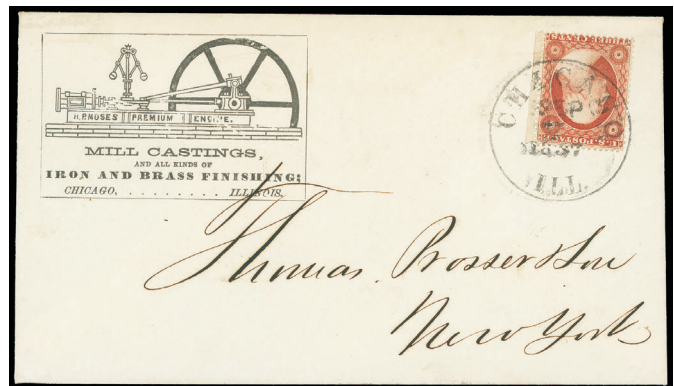 H.P. MOSES PREMIUM ENGINE.
MILL CASTINGS,
AND ALL KINDS OF
IRON AND BRASS FINISHING;
CHICAGO, . . . . . . . . . ILLINOIS.
CHICAGO
SEP
1857
ILL.
Thomas Prosser & Son
New York